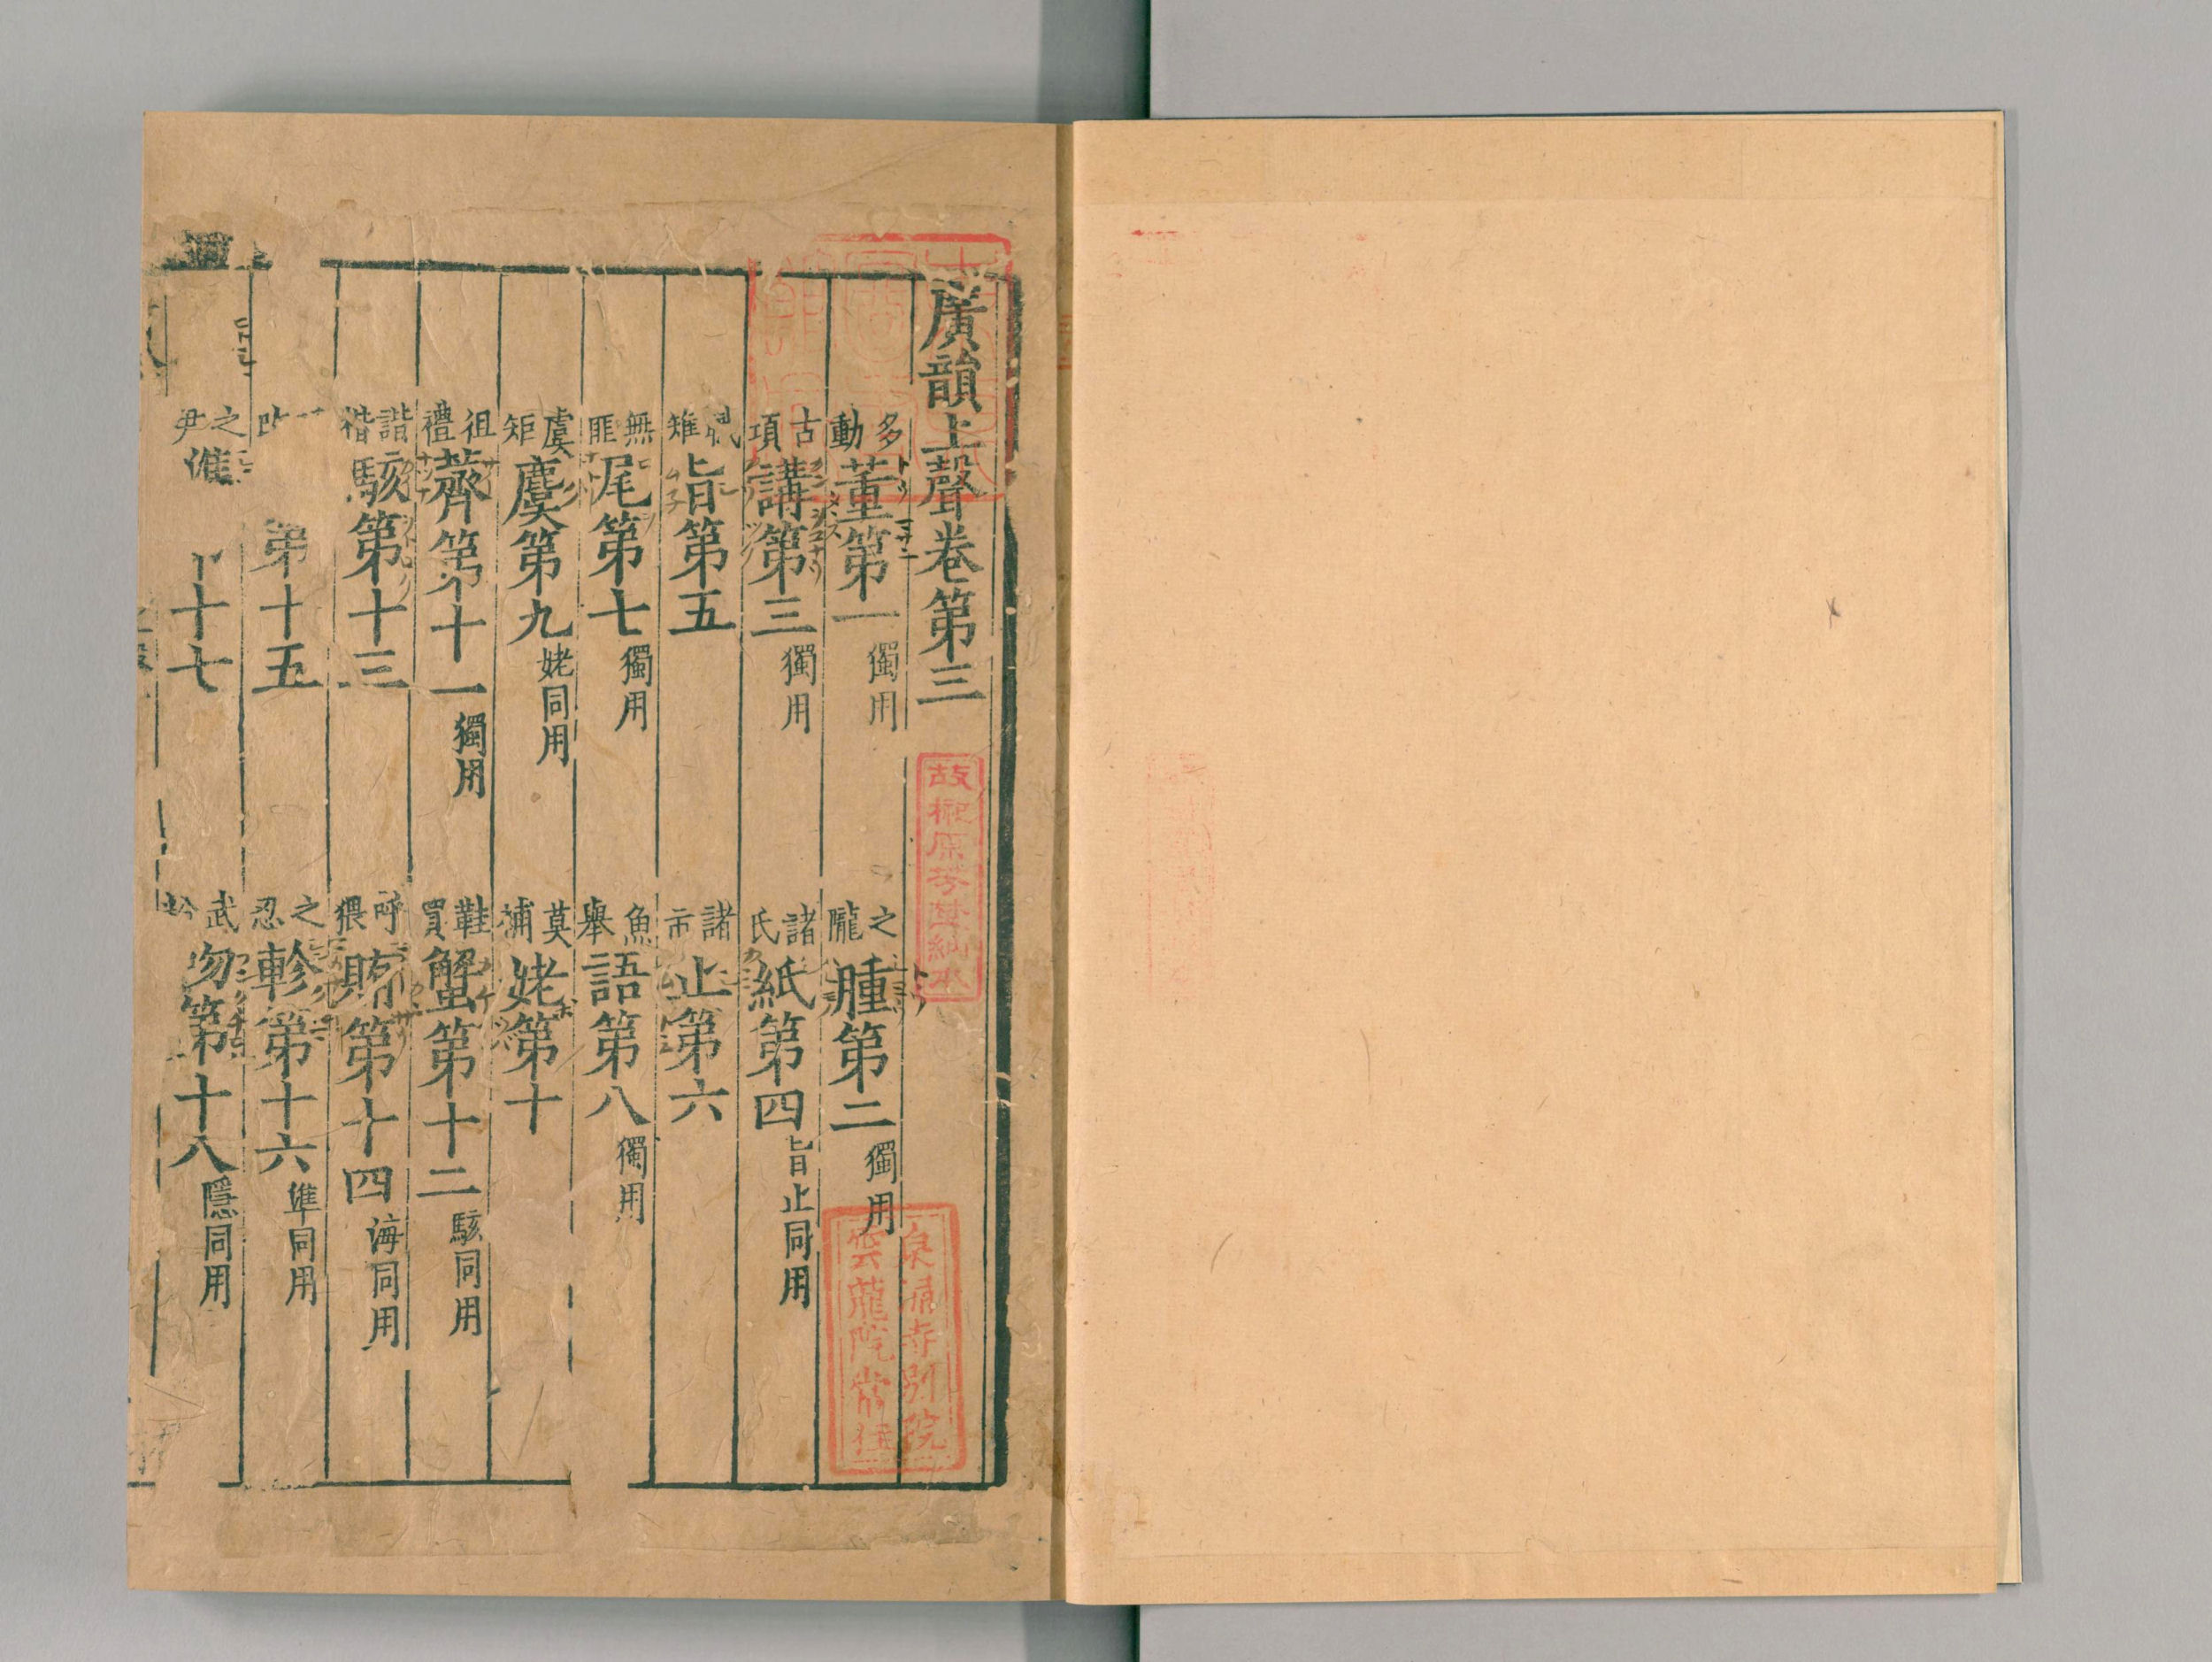 廣韻上聲卷第三
多動董第一獨用 之隴腫第二獨用
古項講第三獨用 諸氏紙第四旨止同用
雉旨第五 諸市止第六
無匪尾第七獨用 魚舉語第八獨用
虞矩麌第九姥同用 莫補姥第十
徂禮薺第十一獨用 鞵買蟹第十二駭同用
諧楷駭第十三 呼猥賄第十四海同用
改第十五 之忍軫第十六準同用
之尹準十七 武吻第十八隱同用
故榊原芳埜納本
泉涌寺別院
雲龍院常住